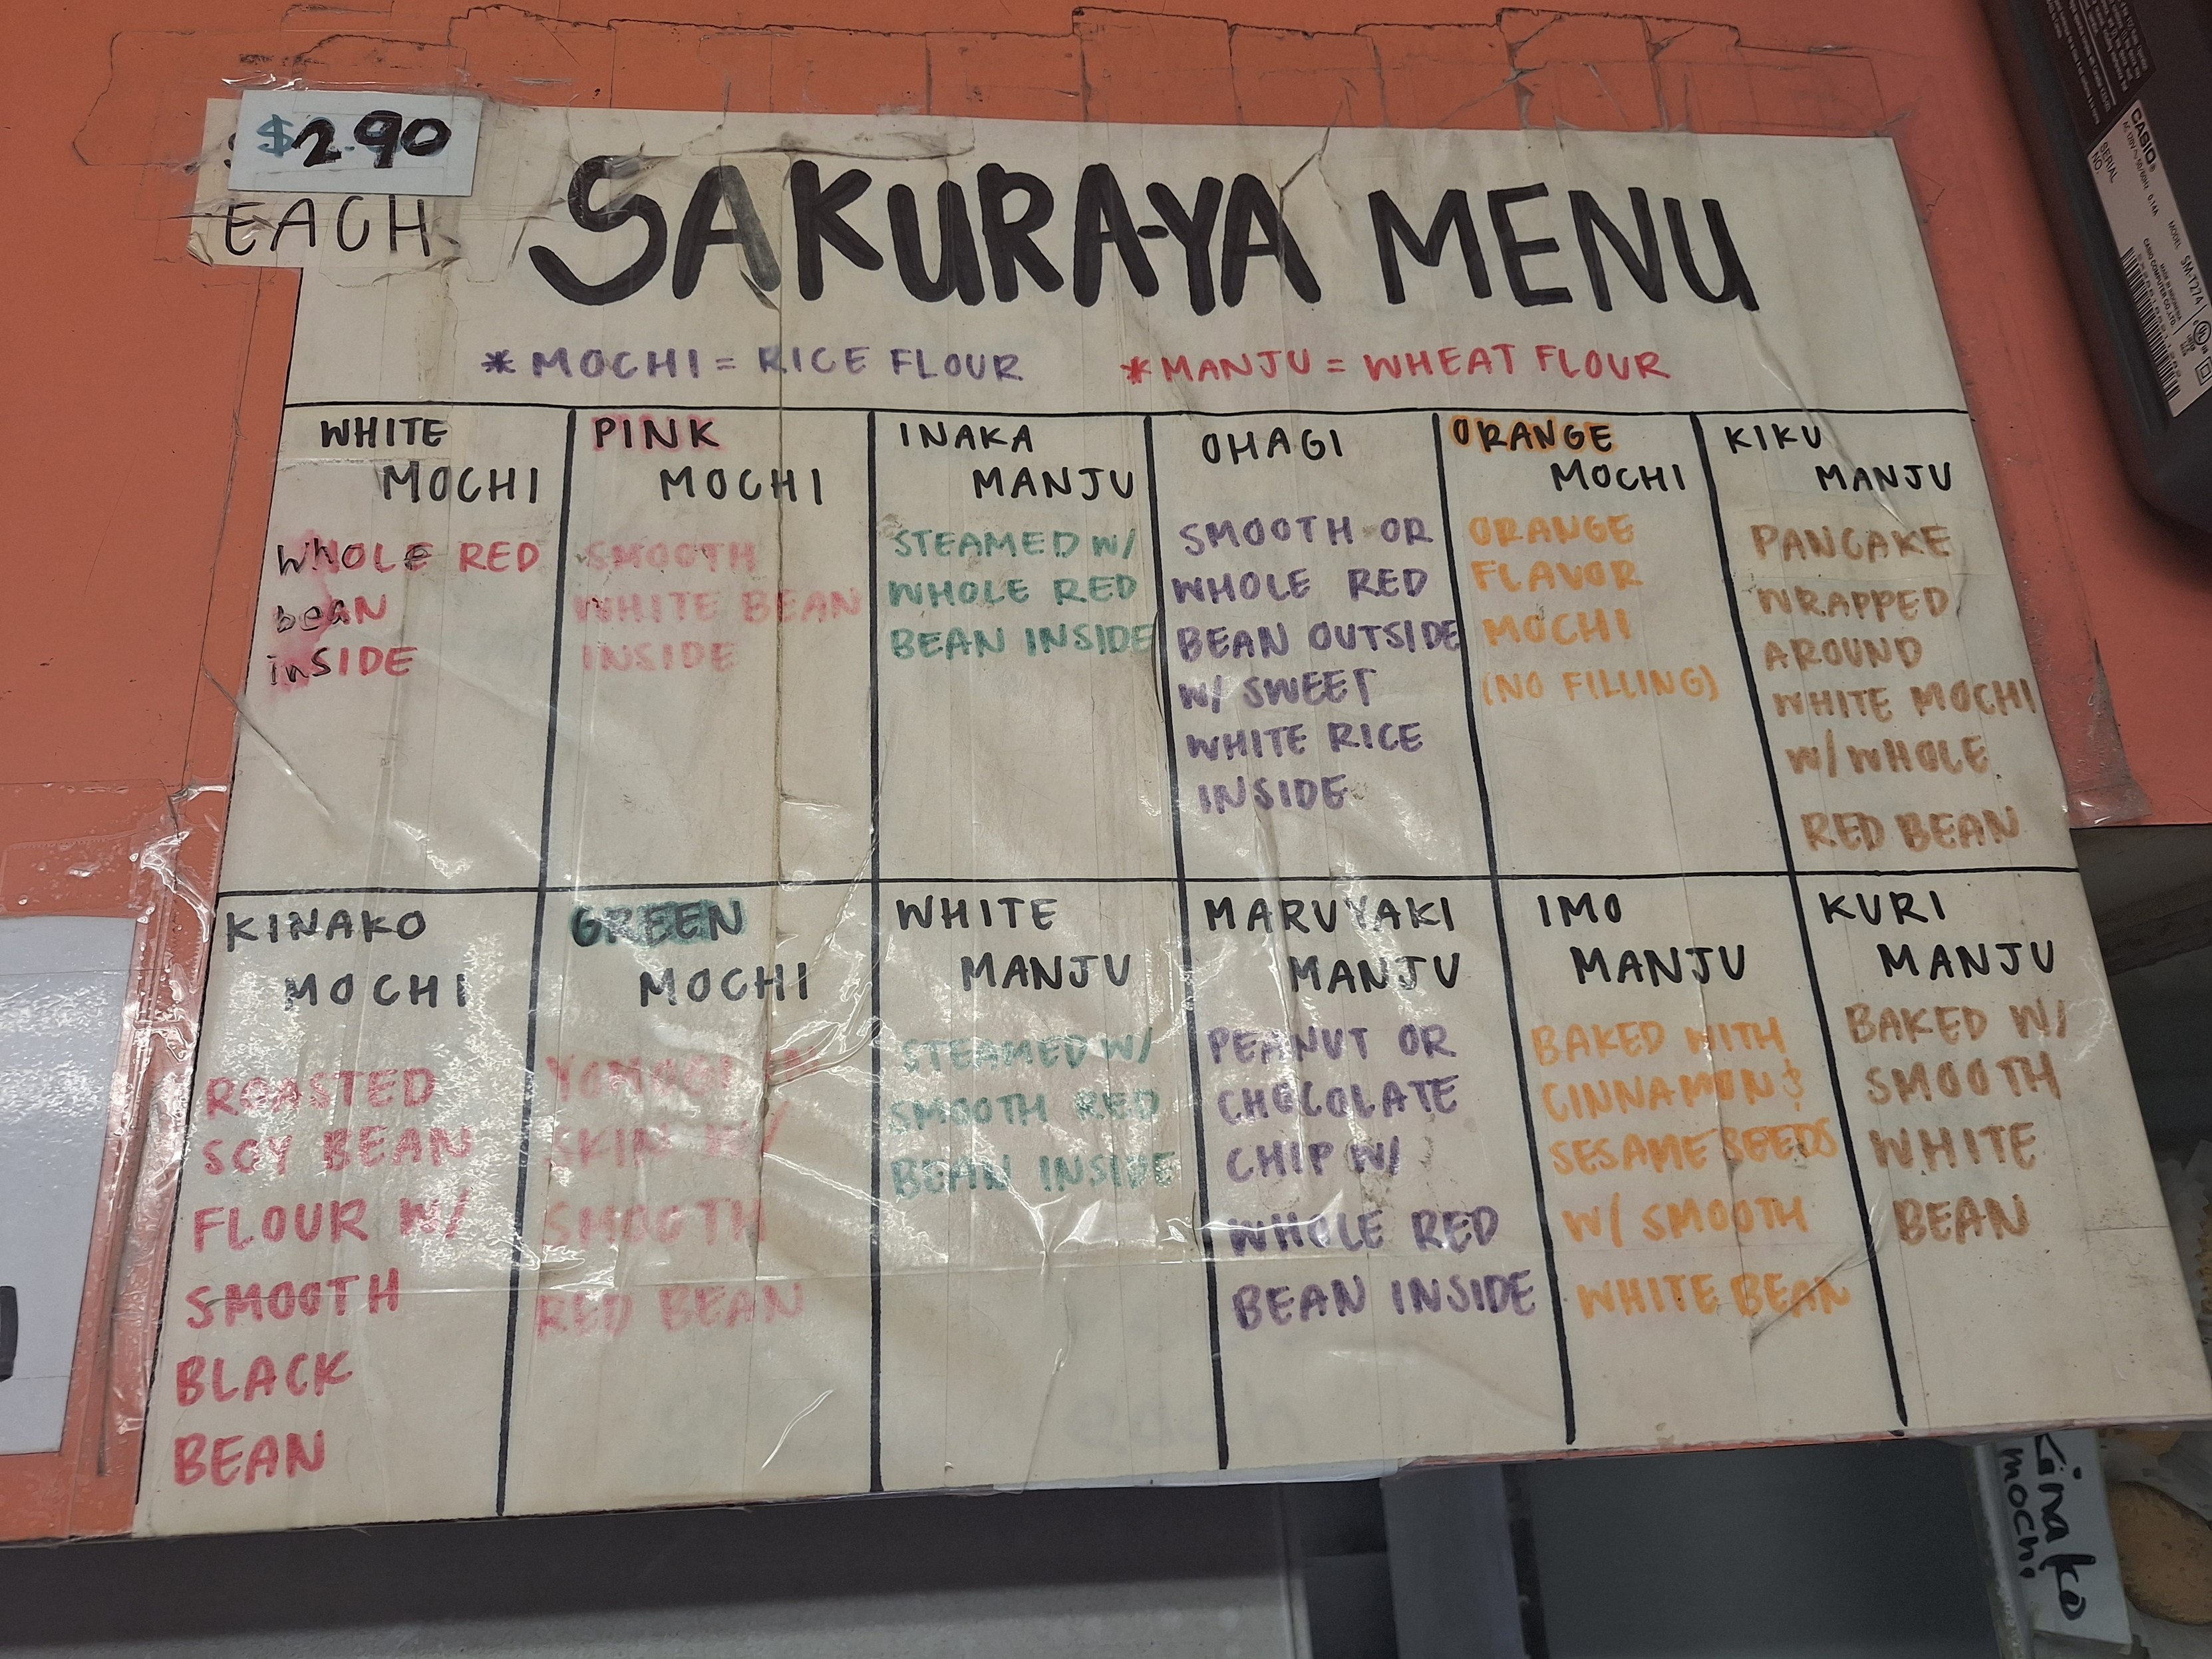 $2.90
EACH
SAKURA-YA MENU
*MOCHI = RICE FLOUR
*MANJU = WHEAT FLOUR
WHITE
MOCHI
WHOLE RED
beAN
inSIDE
PINK
MOCHI
SMOOTH
WHITE BEAN
INSIDE
INAKA
MANJU
STEAMED W/
WHOLE RED
BEAN INSIDE
OHAGI
SMOOTH OR
WHOLE RED
BEAN OUTSIDE
W/ SWEET
WHITE RICE
INSIDE
ORANGE
MOCHI
ORANGE
FLAVOR
MOCHI
(NO FILLING)
KIKU
MANJU
PANCAKE
WRAPPED
AROUND
WHITE MOCHI
W/ WHOLE
RED BEAN
KINAKO
MOCHI
ROASTED
SOY BEAN
FLOUR W/
SMOOTH
BLACK
BEAN
GREEN
MOCHI
SKIN W/
SMOOTH
RED BEAN
WHITE
MANJU
STEAMED W/
SMOOTH RED
BEAN INSIDE
MARUYAKI
MANJU
PEANUT OR
CHOCOLATE
CHIP W/
WHOLE RED
BEAN INSIDE
IMO
MANJU
BAKED WITH
CINNAMON &
SESAME SEEDS
W/ SMOOTH
WHITE BEAN
KURI
MANJU
BAKED W/
SMOOTH
WHITE
BEAN
CASIO
MODEL SM-T274
SERIAL
NO.
Kinako
mochi